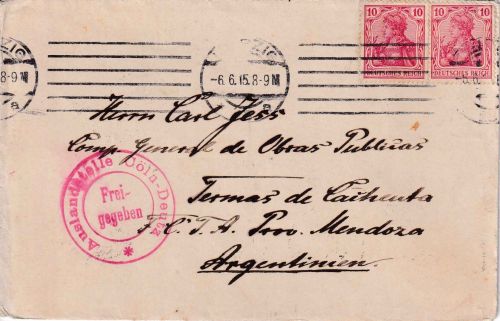 10 10
DEUTSCHES REICH DEUTSCHES REICH
8-9N
-6.6.15.8-9N
a
Herrn Carl Jess
Comp General de Obras Publicas
Termas de Cacheuta
F. C. T. A. Prov. Mendoza
Argentinien.
Auslandstelle Cöln-Deutz
Frei-
gegeben